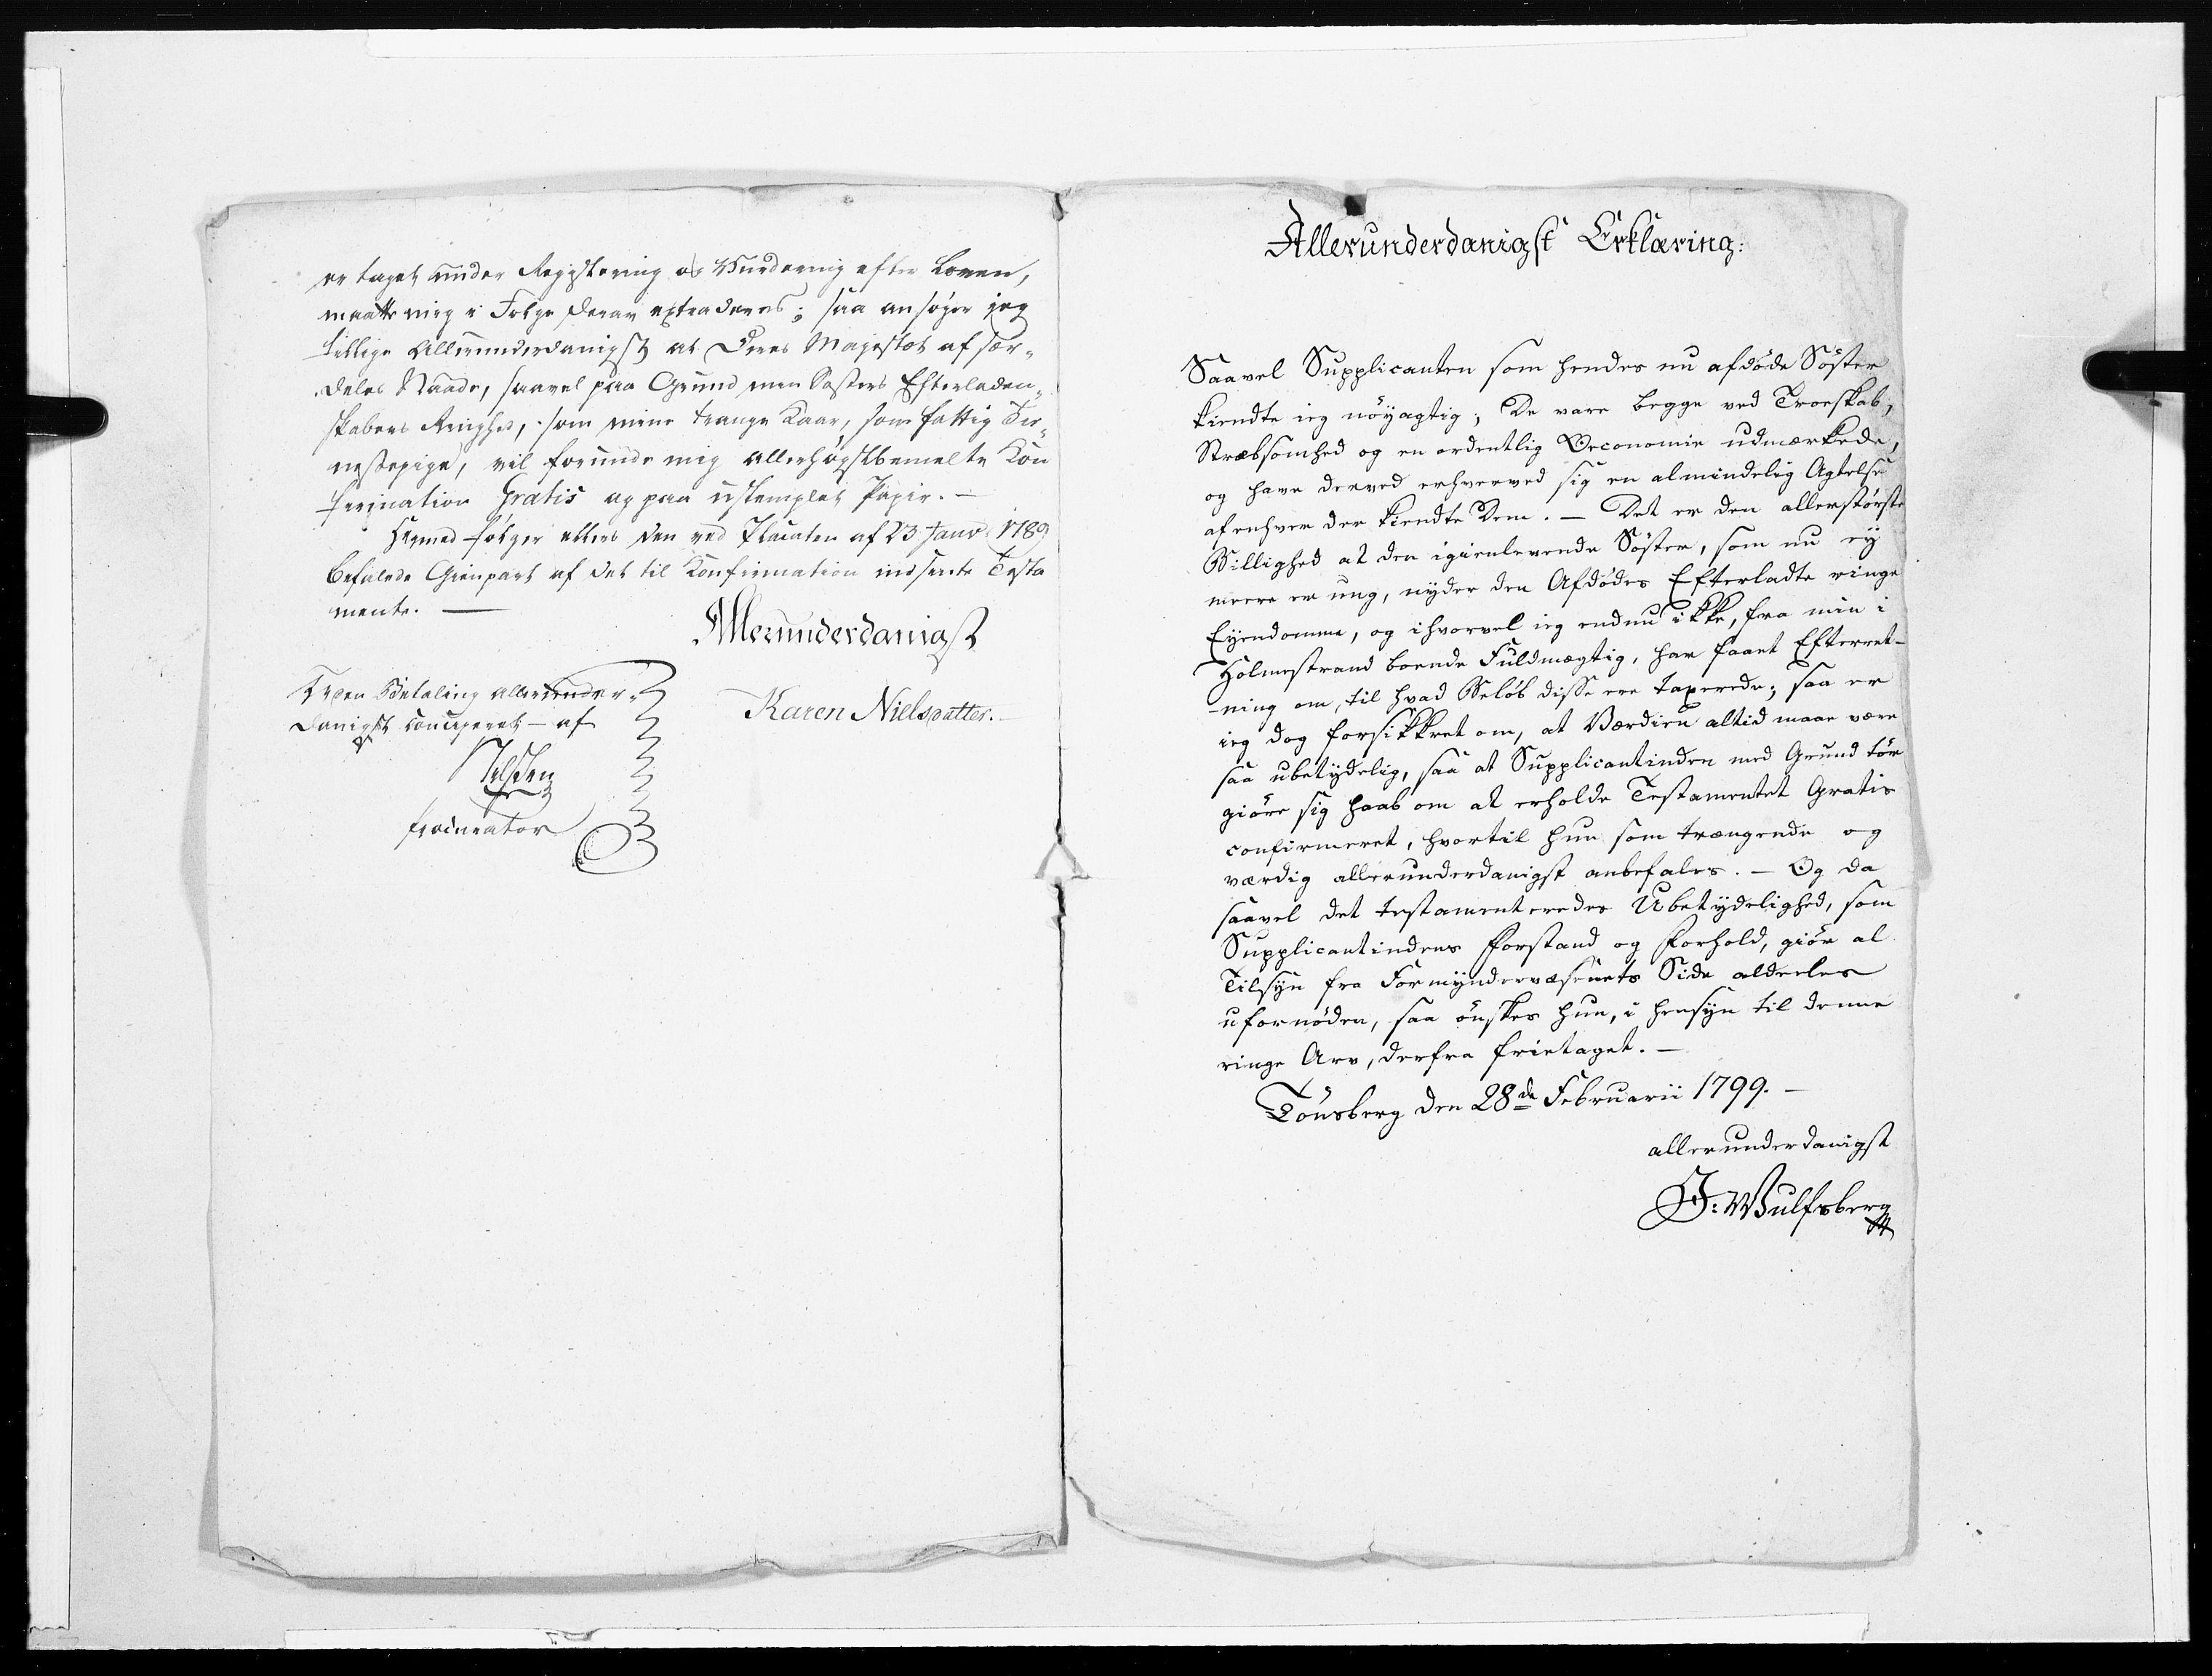 er taget under Registering og Vurdering efter Loven,
maatte mig i Følge deraf extraderes; saa ansøger jeg
tillige Allerunderdanigst at Deres Majestæt af sær-
deles Naade, saavel paa Grund min Søsters Efterladen-
skabers Ringhed, som mine trange Kaar, som fattig Tie-
nestepige, vil forunde mig allerhøystbemelte Con
firmation Gratis og paa ustemplet Papir. —
Hermed følger ellers den ved Placaten af 23 Janv: 1789
befalede Gienpart af det til Confirmation indsendte Testa
mente. —
Allerunderdanigst
Karen Nielsdatter.
Uden Betaling allerunder-
danigst conciperet — af
Nelsen
procurator
Allerunderdanigst Erklæring:
Saavel Supplicanten som hendes nu afdøde Søster
kiendte ieg nøyagtig; De vare begge ved Troeskab,
Stræbsomhed og en ordentlig Oeconomie udmærkede,
og have derved erhvervet sig en almindelig Agtelse
af enhver der kiendte Dem. — Det er den allerstørste
Billighed at den igienlevende Søster, som nu ey
meere er ung, nyder den Afdødes Efterladte ringe
Eyendomme, og ihvorvel ieg endnu ikke, fra min i
Holmestrand boende Fuldmægtig, har faaet Efterret-
-ning om, til hvad Beløb disse ere taxerede; saa er
ieg dog forsikkret om, at Værdien altid maae være
saa ubetydelig, saa at Supplicantinden med Grund tør
giøre sig haab om at erholde Testamentet Gratis
confirmeret, hvortil hun som trængende og
værdig allerunderdanigst anbefales. — Og da
saavel det testamenteredes Ubetydelighed, som
Supplicantindens Forstand og Forhold, giør al
Tilsyn fra Formyndervæsenets Side aldeeles
ufornøden, saa ønskes hun, i hensyn til denne
ringe Arv, derfra frietaget. —
Tønsberg den 28de Februarii 1799. —
allerunderdanigst
J: Wulfsberg